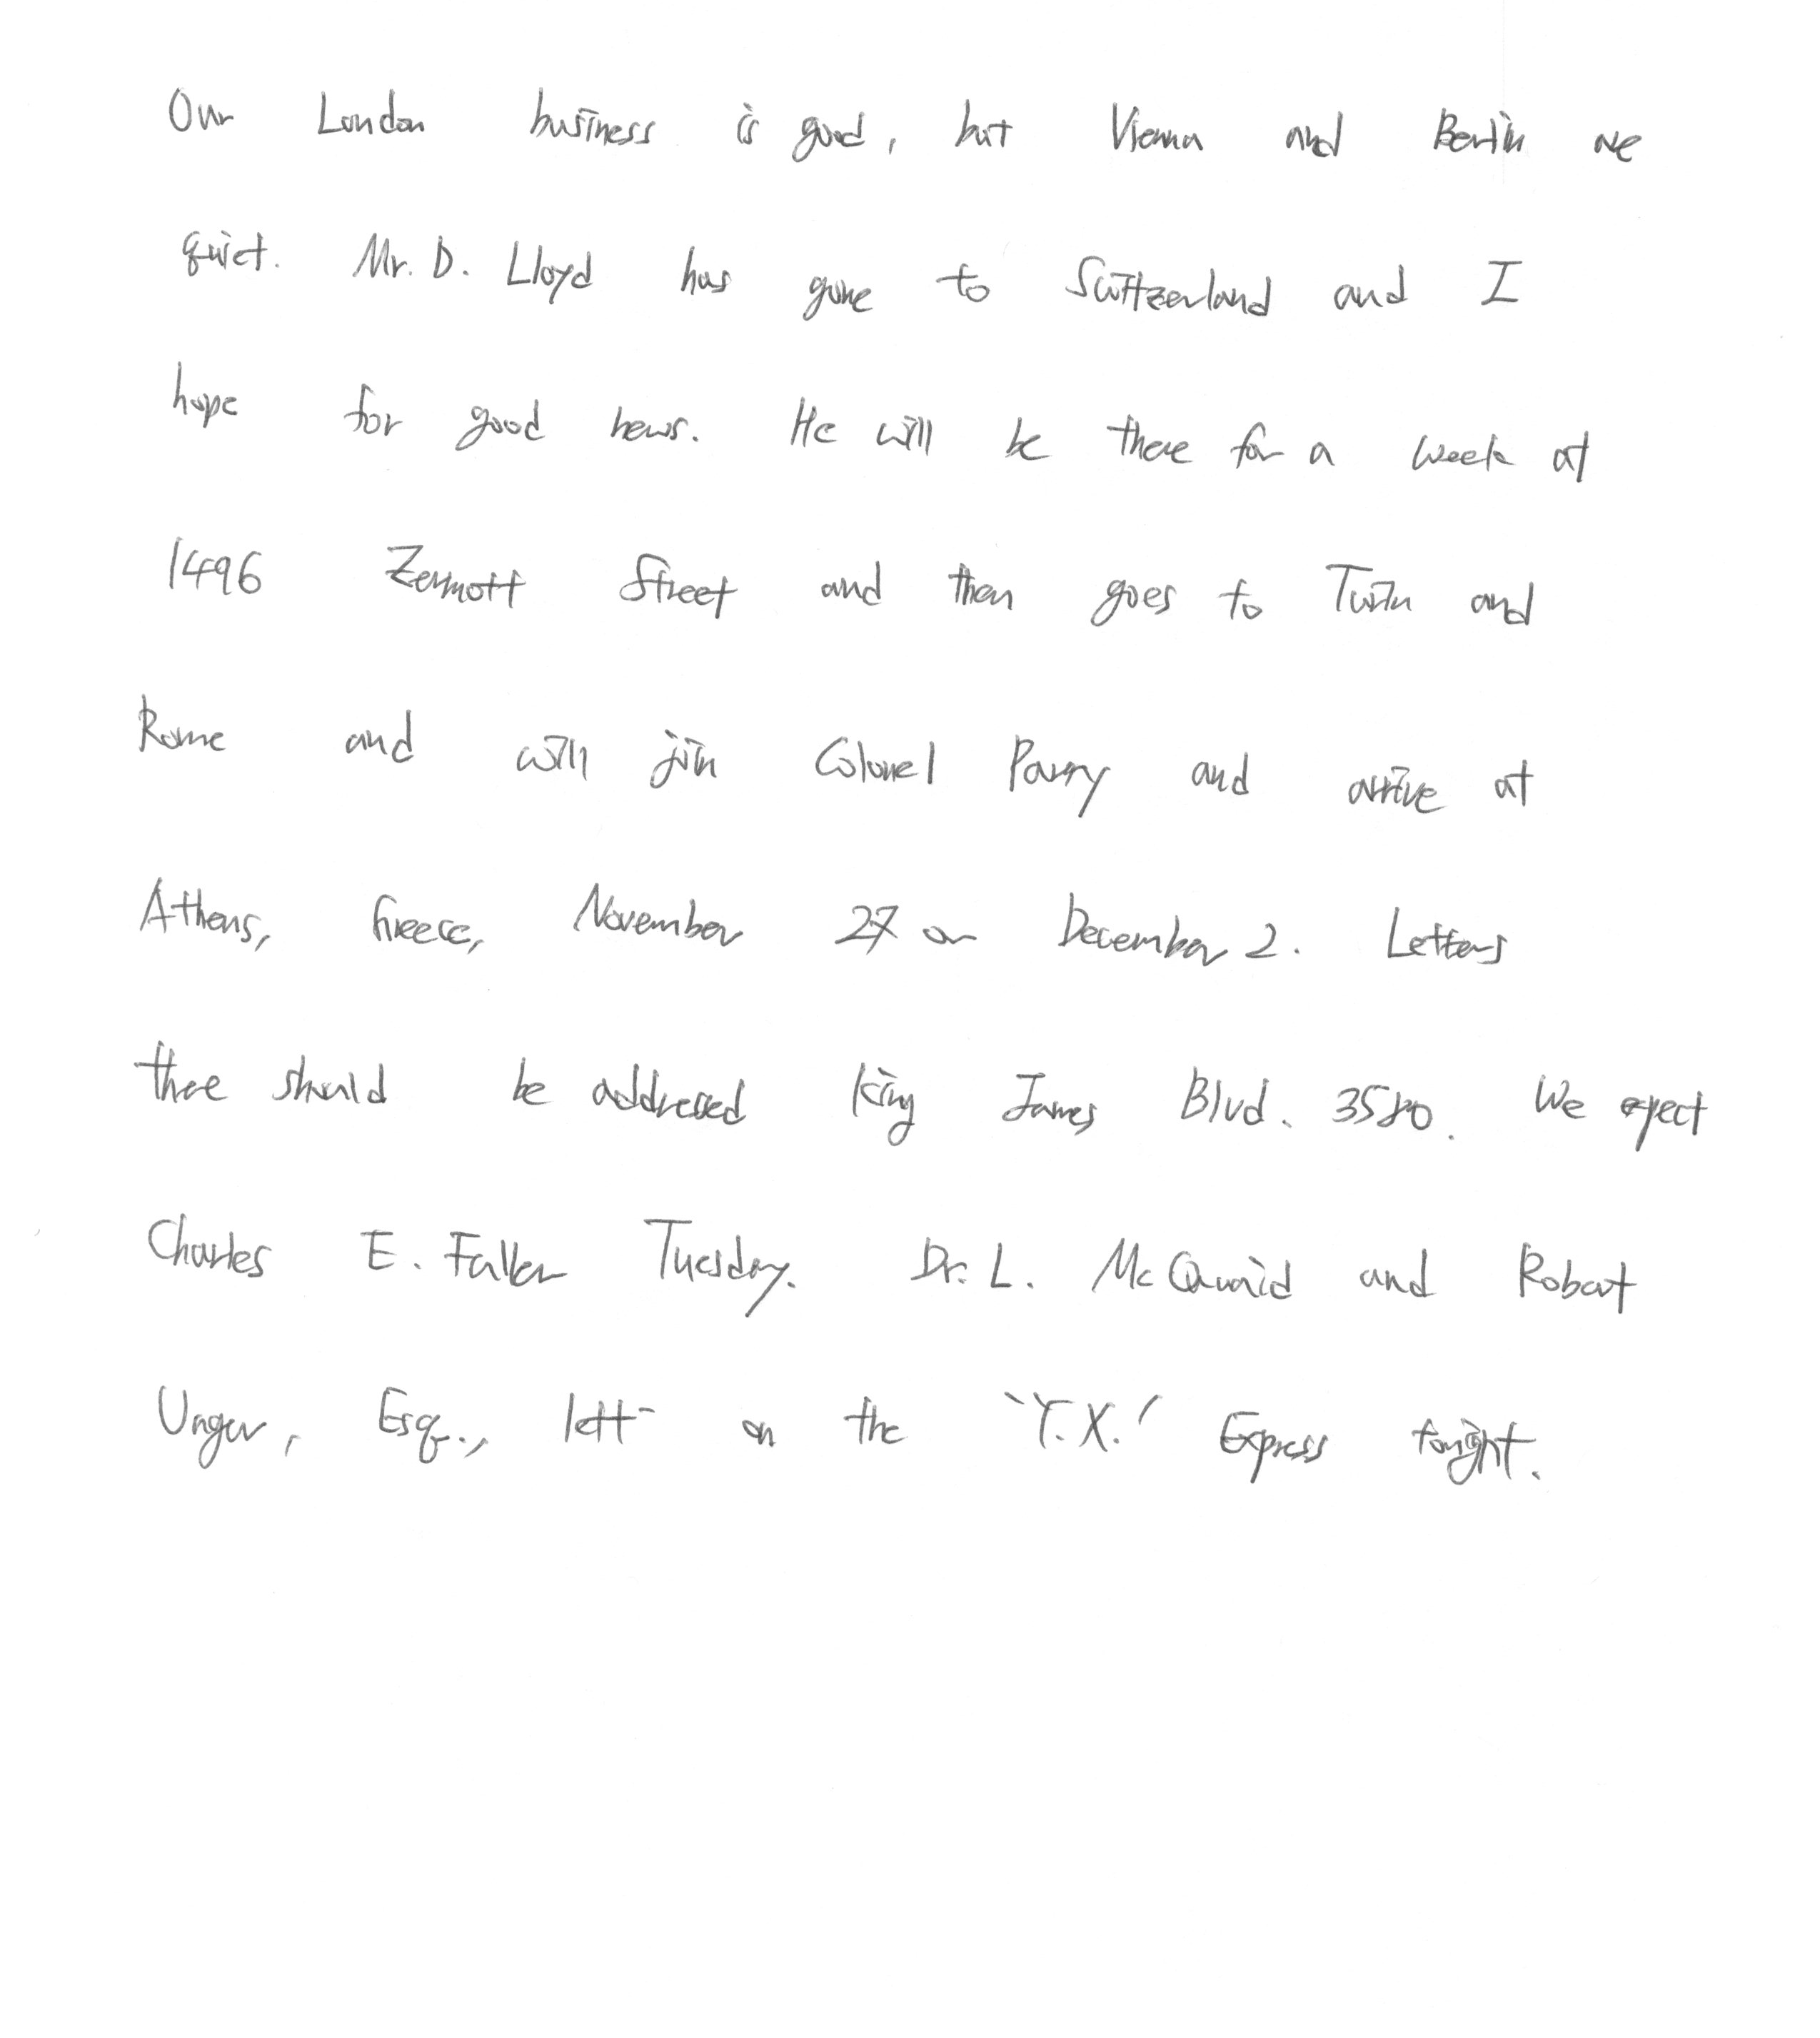 Our London business is good, but Vienna and Berlin are
quiet. Mr. D. Lloyd has gone to Switzerland and I
hope for good news. He will be there for a week at
1496 Zermott Street and then goes to Turin and
Rome and will join Colonel Parry and arrive at
Athens, Greece, November 27 or December 2. Letters
there should be addressed King James Blvd. 3580. We expect
Charles E. Fuller Tuesday. Dr. L. McQuaid and Robert
Unger, Esq., left on the "Y.X." Express tonight.